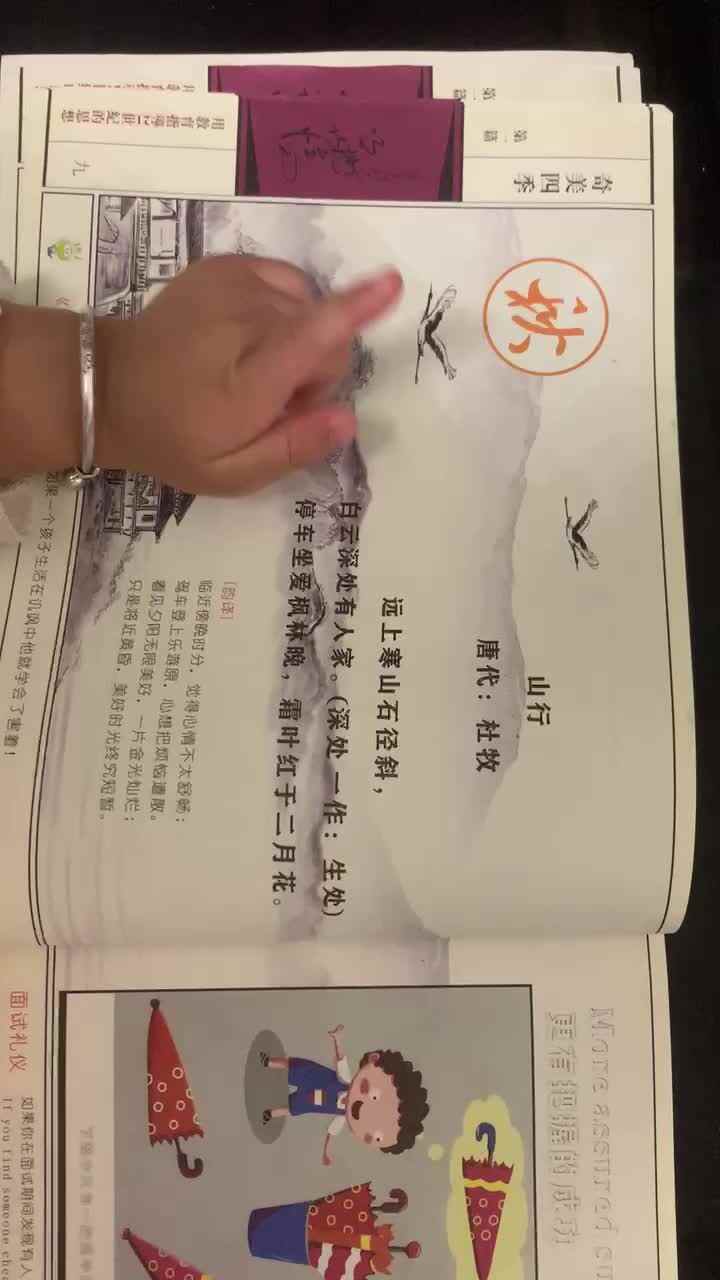 第一篇
奇美四季
秋
山行
唐代：杜牧
远上寒山石径斜，
白云深处有人家。（深处一作：生处）
停车坐爱枫林晚，霜叶红于二月花。
[韵译]
临近傍晚时分，觉得心情不太舒畅；
驾车登上乐游原，心想把烦恼遣散。
看见夕阳无限美好，一片金光灿烂；
只是将近黄昏，美好时光终究短暂。
如果一个孩子生活在讥讽中他就学会了害羞！
用教育指导21世纪的思想
九
More assured
更有把握的成功
面试礼仪
如果你在面试期间发现有人
If you find someone